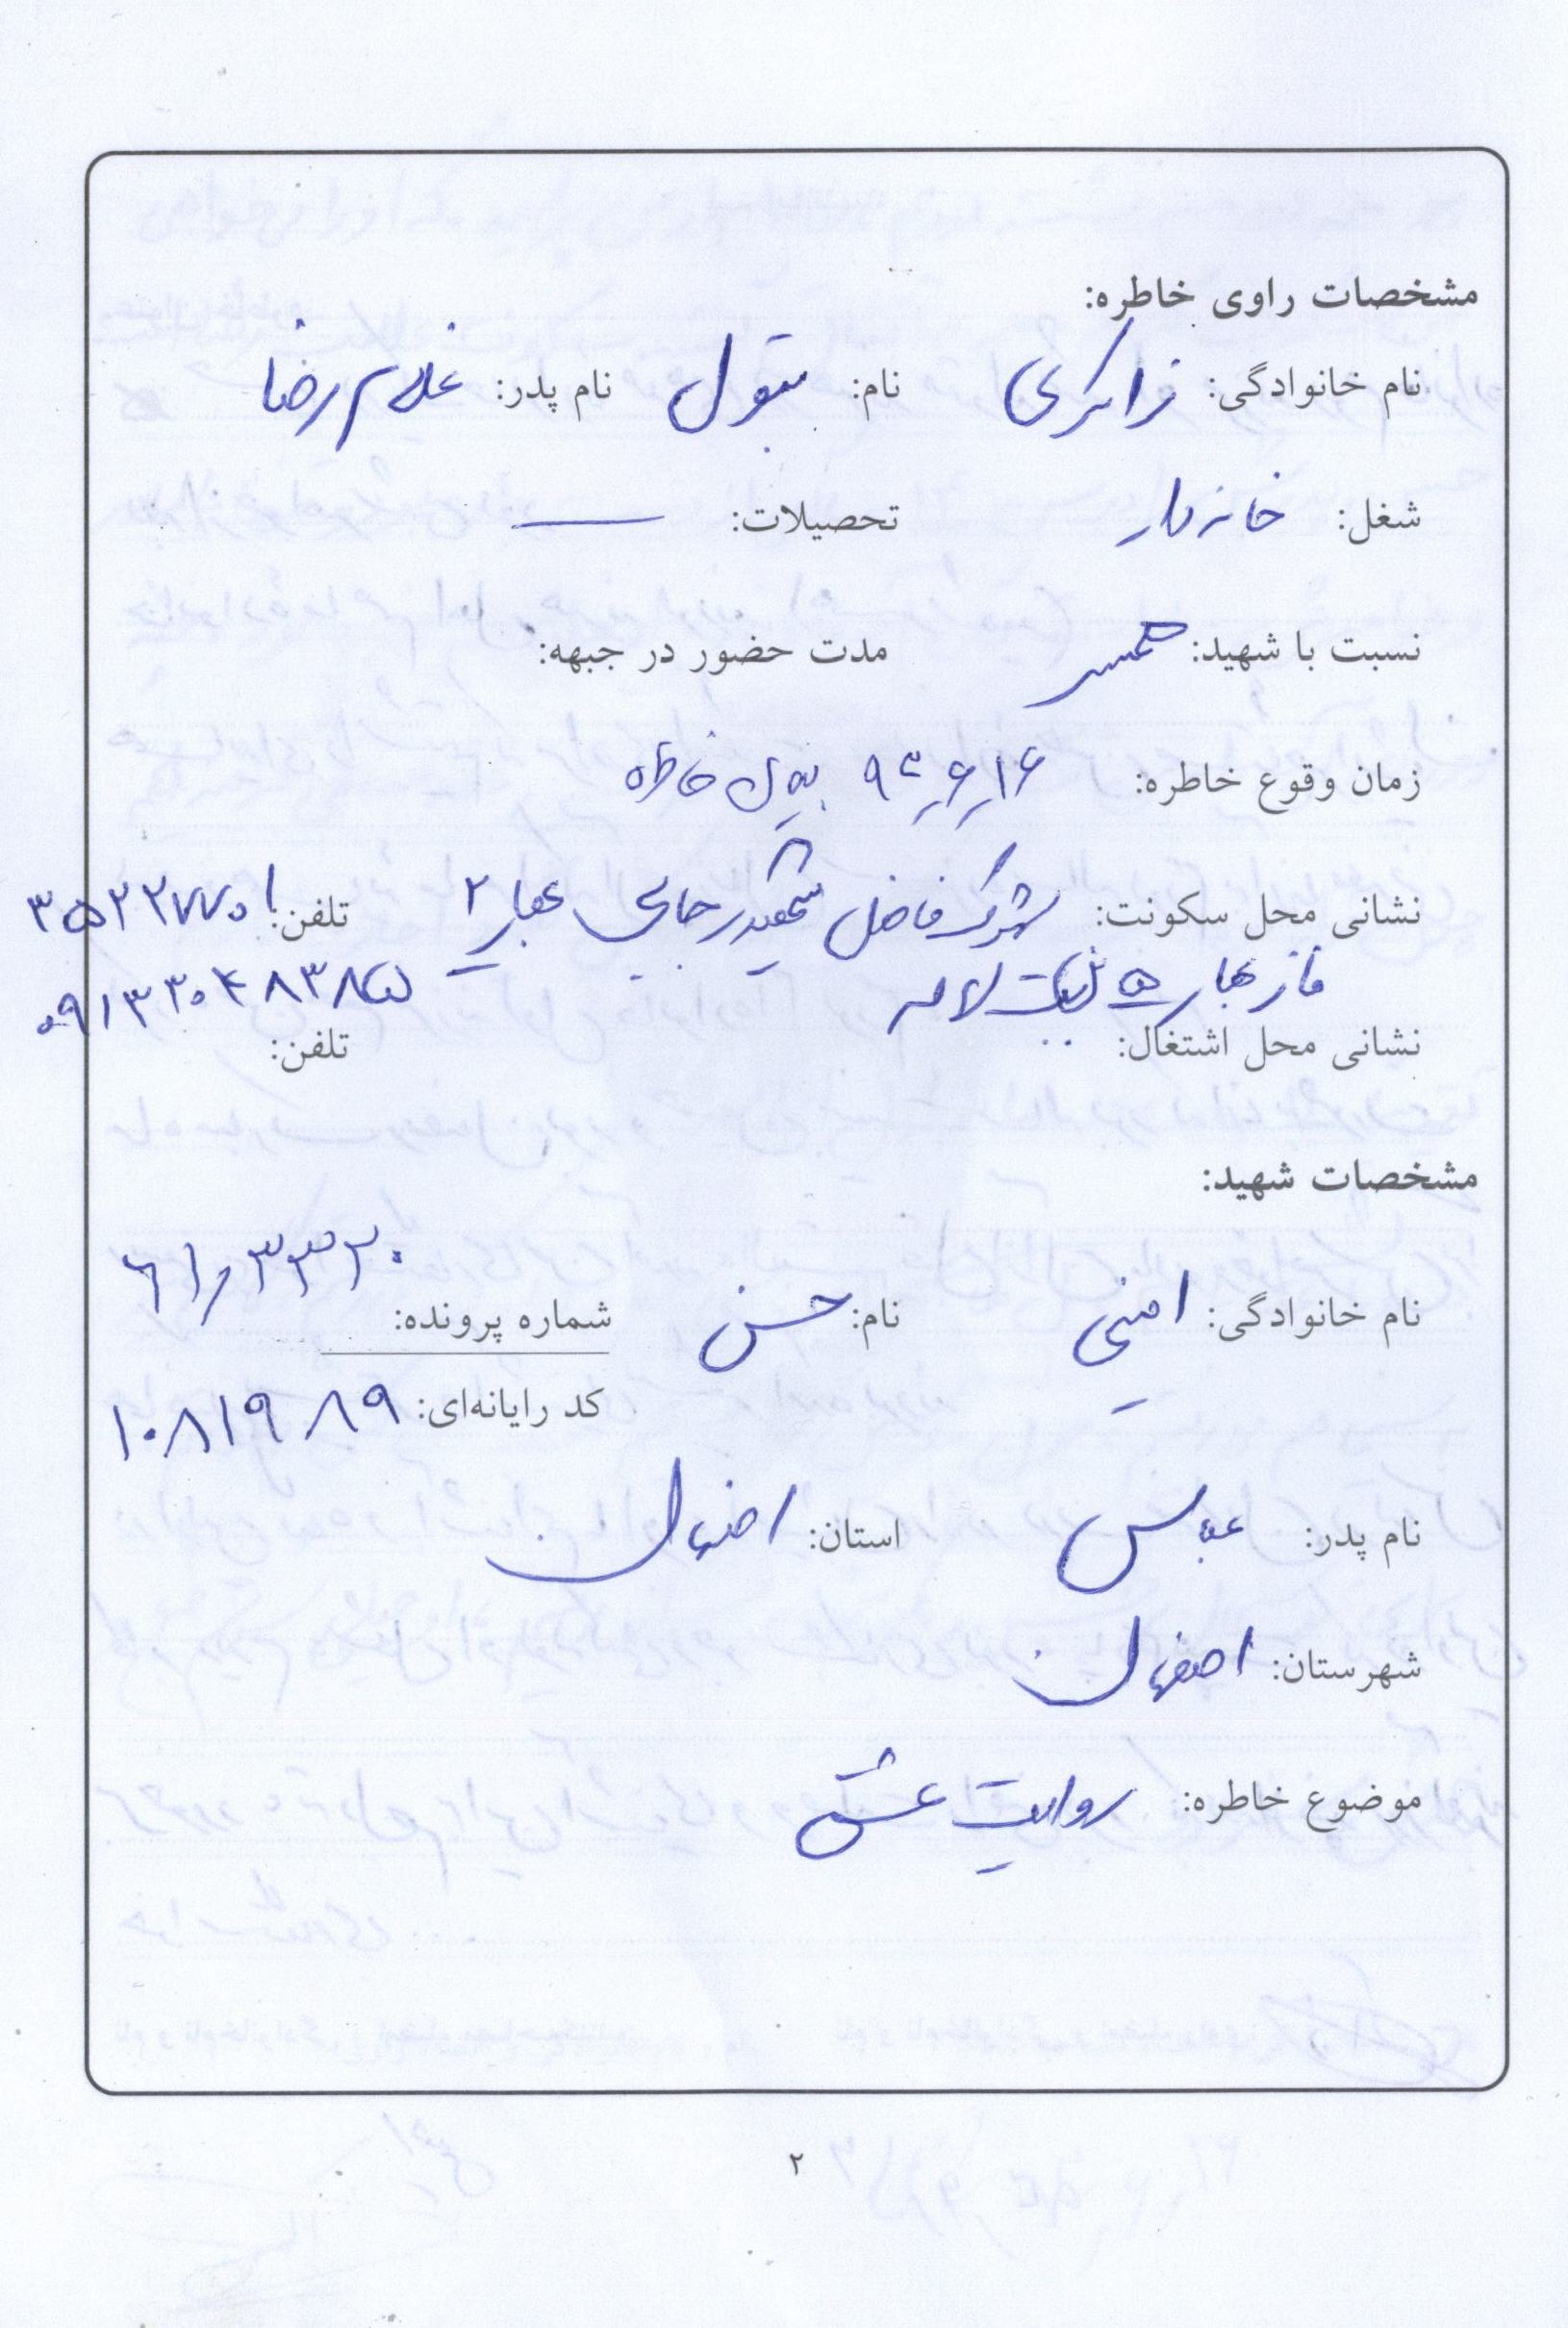 مشخصات راوی خاطره:
نام خانوادگی: ذاکری نام: بتول نام پدر: غلامرضا
شغل: خانه‌دار تحصیلات: ــــ
نسبت با شهید: همسر مدت حضور در جبهه:
زمان وقوع خاطره: ۹۳/۶/۱۶ خاطره
نشانی محل سکونت: شهرک فاضل شهید رجایی ۲ تلفن: ۳۵۲۲۷۷۰۱
فاز ۵ لاله ۰۹۱۳۳۰۴۸۳۸۵
نشانی محل اشتغال: تلفن:
مشخصات شهید:
نام خانوادگی: امینی نام: حسن شماره پرونده: ۶۱/۳۳۲۰
کد رایانه‌ای: ۱۰۸۱۹۸۹
نام پدر: عباس استان: اصفهان
شهرستان: اصفهان
موضوع خاطره: روایت عشق
۲